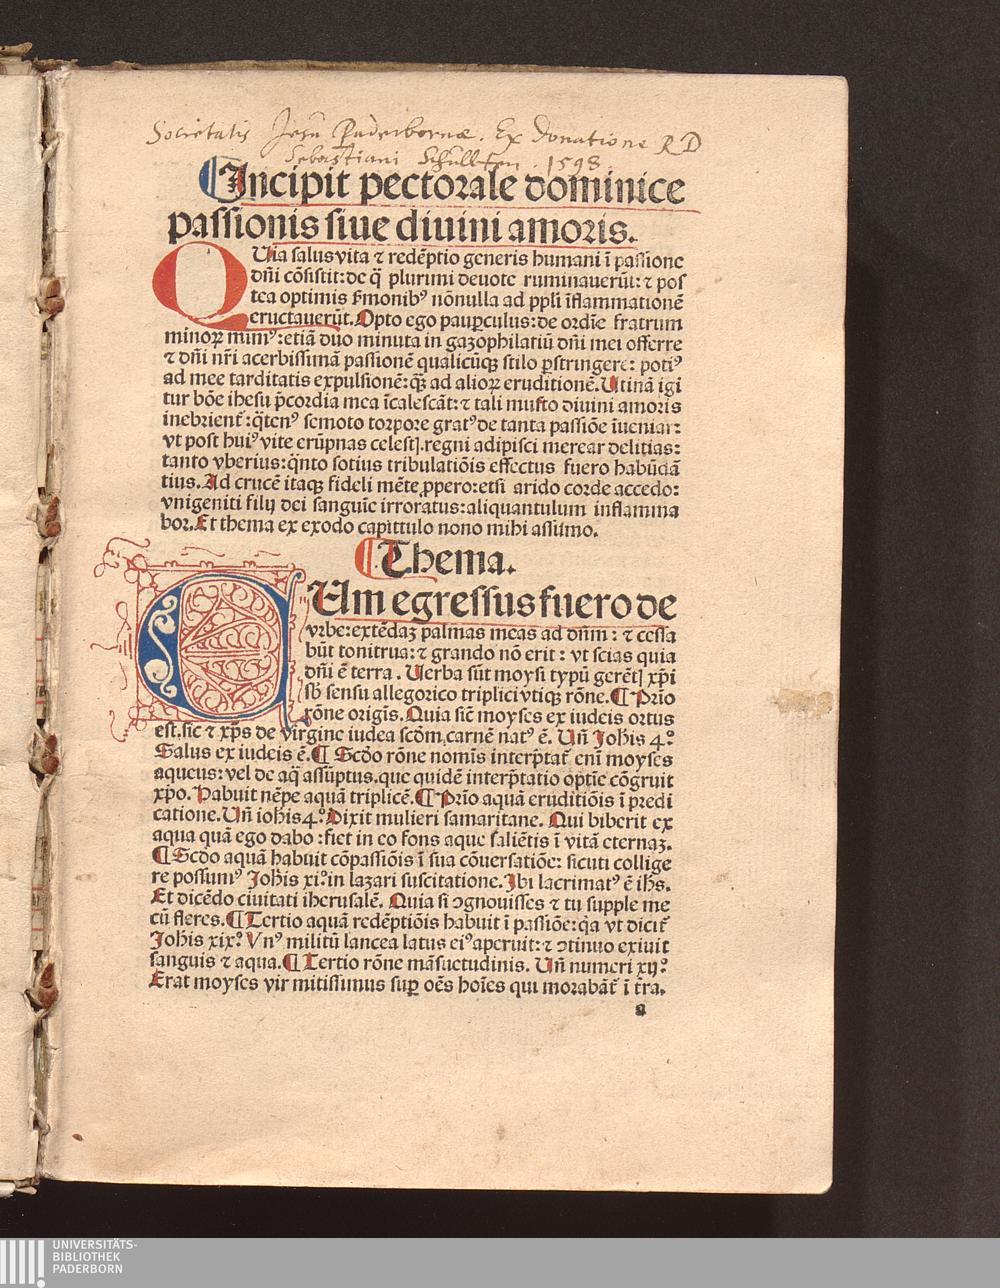 Societatis Jesu Paderbornæ. Ex Donatione RD
Sebastiani 1598.
¶Incipit pectorale dominice
passionis siue diuini amoris.
QUia salus vita ⁊ redẽptio generis humani ĩ passione
dñi cõsistit: de q̃ plurimi deuote ruminauerũt: ⁊ pos
tea optimis ẜmonibꝰ nõnulla ad ppli ĩflammationẽ
eructauerũt. Opto ego paupculus: de ordĩe fratrum
minoꝝ minꝰ: etiã duo minuta in gazophilatiũ dñi mei offerre
⁊ dñi nr̃i acerbissimã passionẽ qualicũqꝫ stilo ꝑstringere: potiꝰ
ad mee tarditatis expulsionẽ: qꝫ ad alioꝝ eruditionẽ. Utinã igi
tur bõe ihesu p̃cordia mea ĩcalescãt: ⁊ tali musto diuini amoris
inebrient̃: q̃tenꝰ semoto torpore gratꝰ de tanta passiõe ĩueniar:
vt post huiꝰ vite erũpnas celestꝭ regni adipisci merear delitias:
tanto vberius: q̃nto sotius tribulatiõis effectus fuero habũdã
tius. Ad crucẽ itaqꝫ fideli mẽte ꝓpero: etsi arido corde accedo:
vnigeniti filij dei sanguĩe irroratus: aliquantulum inflamma
bor. Et thema ex exodo capittulo nono mihi assumo.
¶Thema.
CUm egressus fuero de
vrbe: extẽdaꝫ palmas meas ad dñm: ⁊ cessa
bũt tonitrua: ⁊ grando nõ erit: vt scias quia
dñi ẽ terra. Uerba sũt moysi typũ gerẽtꝭ xp̃i
sb̃ sensu allegorico triplici vtiqꝫ rõne. ¶ Prĩo
rõne origĩs. Quia sic̃ moyses ex iudeis ortus
est. sic ⁊ xp̃s de virgine iudea scd̃m carnẽ natꝰ ẽ. Uñ Joh̃is 4.º
Salus ex iudeis ẽ. ¶ Scd̃o rõne nomĩs interp̃tat̃ enĩ moyses
aqueus: vel de aq̃ assũptus. que quidẽ interp̃tatio optĩe cõgruit
xp̃o. Habuit nẽpe aquã triplicẽ. ¶ Prĩo aquã eruditiõis ĩ predi
catione. Uñ ioh̃is 4.º Dixit mulieri samaritane. Qui biberit ex
aqua quã ego dabo: fiet in eo fons aque saliẽtis ĩ vitã eternaꝫ.
¶ Scd̃o aquã habuit cõpassiõis ĩ sua cõuersatiõe: sicuti collige
re possumꝰ Joh̃is xi.º in lazari suscitatione. Ibi lacrimatꝰ ẽ ih̃s.
Et dicẽdo ciuitati iherusalẽ. Quia si ꝯgnouisses ⁊ tu supple me
cũ fleres. ¶ Tertio aquã redẽptiõis habuit ĩ passiõe: q̃a vt dicit̃
Joh̃is xix.º Vnꝰ militũ lancea latus eiꝰ aperuit: ⁊ ꝯtinuo exiuit
sanguis ⁊ aqua. ¶ Tertio rõne mãsuetudinis. Uñ numeri xij.º
Erat moyses vir mitissimus sup oẽs hoĩes qui morabãt̃ ĩ t̃ra.
a
UNIVERSITÄTS-
BIBLIOTHEK
PADERBORN